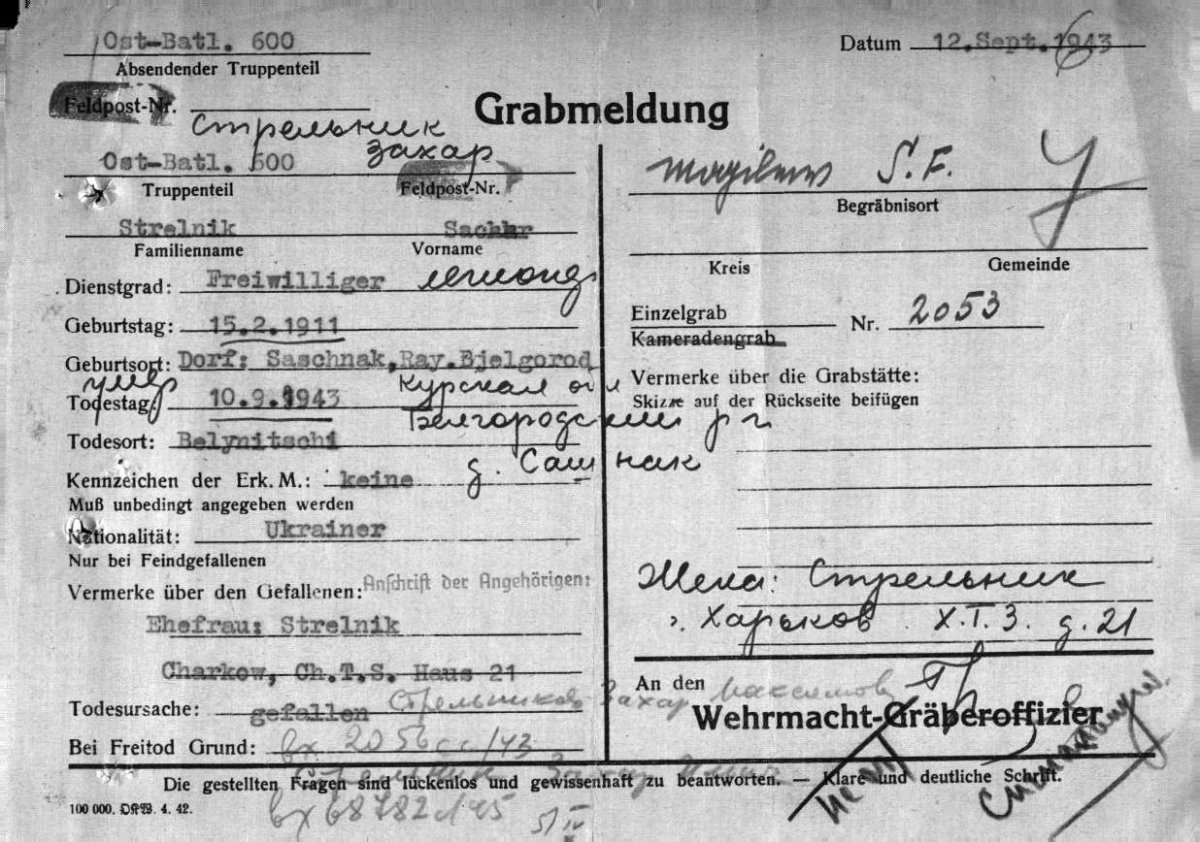 Ost-Batl. 600
Absendender Truppenteil
Datum 12.Sept.1943
Feldpost-Nr.
Grabmeldung
Стрельник
Захар
Ost-Batl. 600
Truppenteil
Feldpost-Nr.
Strelnik
Familienname
Vorname
Dienstgrad: Freiwilliger
Geburtstag: 15.2.1911
Geburtsort: Dorf: Saschnak, Ray. Bjelgorod
умер
Курская обл
Todestag 10.9.1943
Белгородский р-н
Todesort: Belynitschi
д. Сашнак
Kennzeichen der Erk. M.: keine
Muß unbedingt angegeben werden
Nationalität: Ukrainer
Nur bei Feindgefallenen
Vermerke über den Gefallenen: Anschrift der Angehörigen:
Ehefrau: Strelnik
Charkow, Ch.T.S. Haus 21
Todesursache: gefallen
Bei Freitod Grund:
вх 2056сс/43
S. F.
Begräbnisort
Kreis
Gemeinde
Einzelgrab
Kameradengrab
Nr. 2053
Vermerke über die Grabstätte:
Skizze auf der Rückseite beifügen
Жена: Стрельник
Харьков Х.Т.З. д. 21
An den
Wehrmacht-Gräberoffizier
Die gestellten Fragen sind lückenlos und gewissenhaft zu beantworten. — Klare und deutliche Schrift.
100 000. 4. 42.